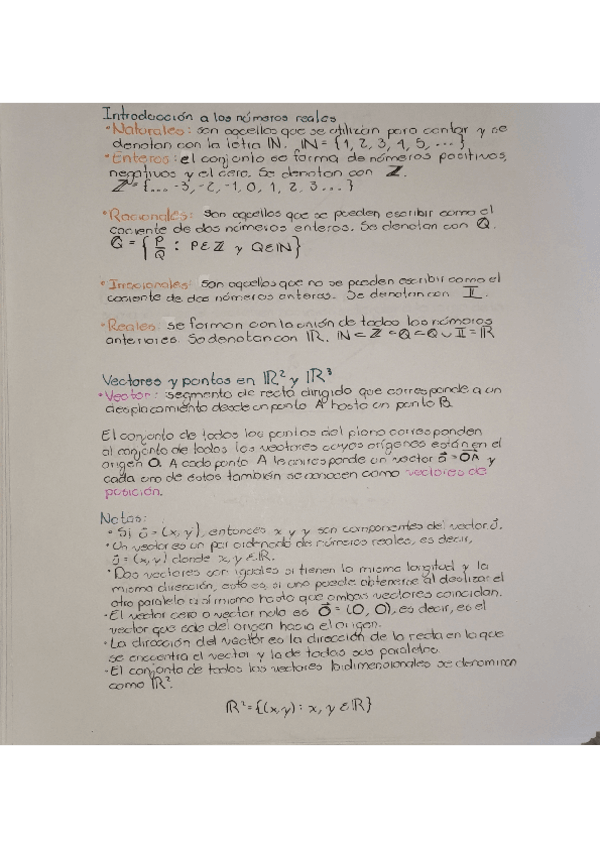 Introducción a los números reales
• Naturales: son aquellos que se utilizan para contar y se
denotan con la letra ℕ. ℕ = {1, 2, 3, 4, 5, ...}
• Enteros: el conjunto se forma de números positivos,
negativos y el cero. Se denotan con ℤ.
ℤ = {... -3, -2, -1, 0, 1, 2, 3 ...}
• Racionales: son aquellos que se pueden escribir como el
cociente de dos números enteros. Se denotan con ℚ.
ℚ = {P/Q : P∈ℤ y Q∈ℕ}
• Irracionales: son aquellos que no se pueden escribir como el
cociente de dos números enteros. Se denotan con 𝕀.
• Reales: se forman con la unión de todos los números
anteriores. Se denotan con ℝ. ℕ ⊂ ℤ ⊂ ℚ ⊂ ℚ ∪ 𝕀 = ℝ
Vectores y puntos en ℝ² y ℝ³
• Vector: segmento de recta dirigido que corresponde a un
desplazamiento desde un punto A hasta un punto B.
El conjunto de todos los puntos del plano corresponden
al conjunto de todos los vectores cuyos orígenes están en el
origen O. A cada punto A le corresponde un vector a⃗ = OA⃗ y
cada uno de estos también se conocen como vectores de
posición.
Notas:
• Si u⃗ = (x, y), entonces x y y son componentes del vector u⃗.
• Un vector es un par ordenado de números reales, es decir,
u⃗ = (x, y) donde x, y ∈ ℝ.
• Dos vectores son iguales si tienen la misma longitud y la
misma dirección, esto es, si uno puede obtenerse al deslizar el
otro paralelo a sí mismo hasta que ambos vectores coincidan.
• El vector cero o vector nulo es 0⃗ = (0, 0), es decir, es el
vector que sale del origen hacia el origen.
• La dirección del vector es la dirección de la recta en la que
se encuentra el vector y la de todas sus paralelas.
• El conjunto de todos los vectores bidimensionales se denominan
como ℝ².
ℝ² = {(x, y) : x, y ∈ ℝ}